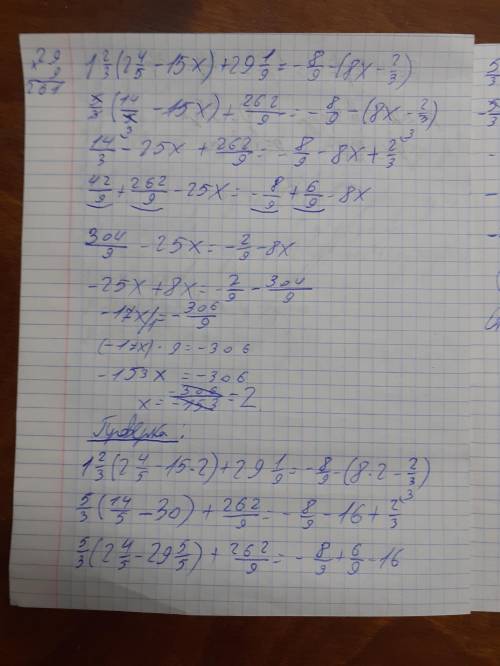 29
× 9
261
1 2/3 (2 4/5 - 15x) + 29 1/9 = - 8/9 - (8x - 2/3)
5/3 (14/5 - 15x) + 262/9 = - 8/9 - (8x - 2/3)
14/3 - 25x + 262/9 = - 8/9 - 8x + 2/3
42/9 + 262/9 - 25x = - 8/9 + 6/9 - 8x
304/9 - 25x = - 2/9 - 8x
-25x + 8x = - 2/9 - 304/9
-17x/1 = - 306/9
(-17x) · 9 = -306
-153x = -306
x = -306/-153 = 2
Проверка:
1 2/3 (2 4/5 - 15·2) + 29 1/9 = - 8/9 - (8·2 - 2/3)
5/3 (14/5 - 30) + 262/9 = - 8/9 - 16 + 2/3
5/3 (2 4/5 - 29 5/5) + 262/9 = - 8/9 + 6/9 - 16